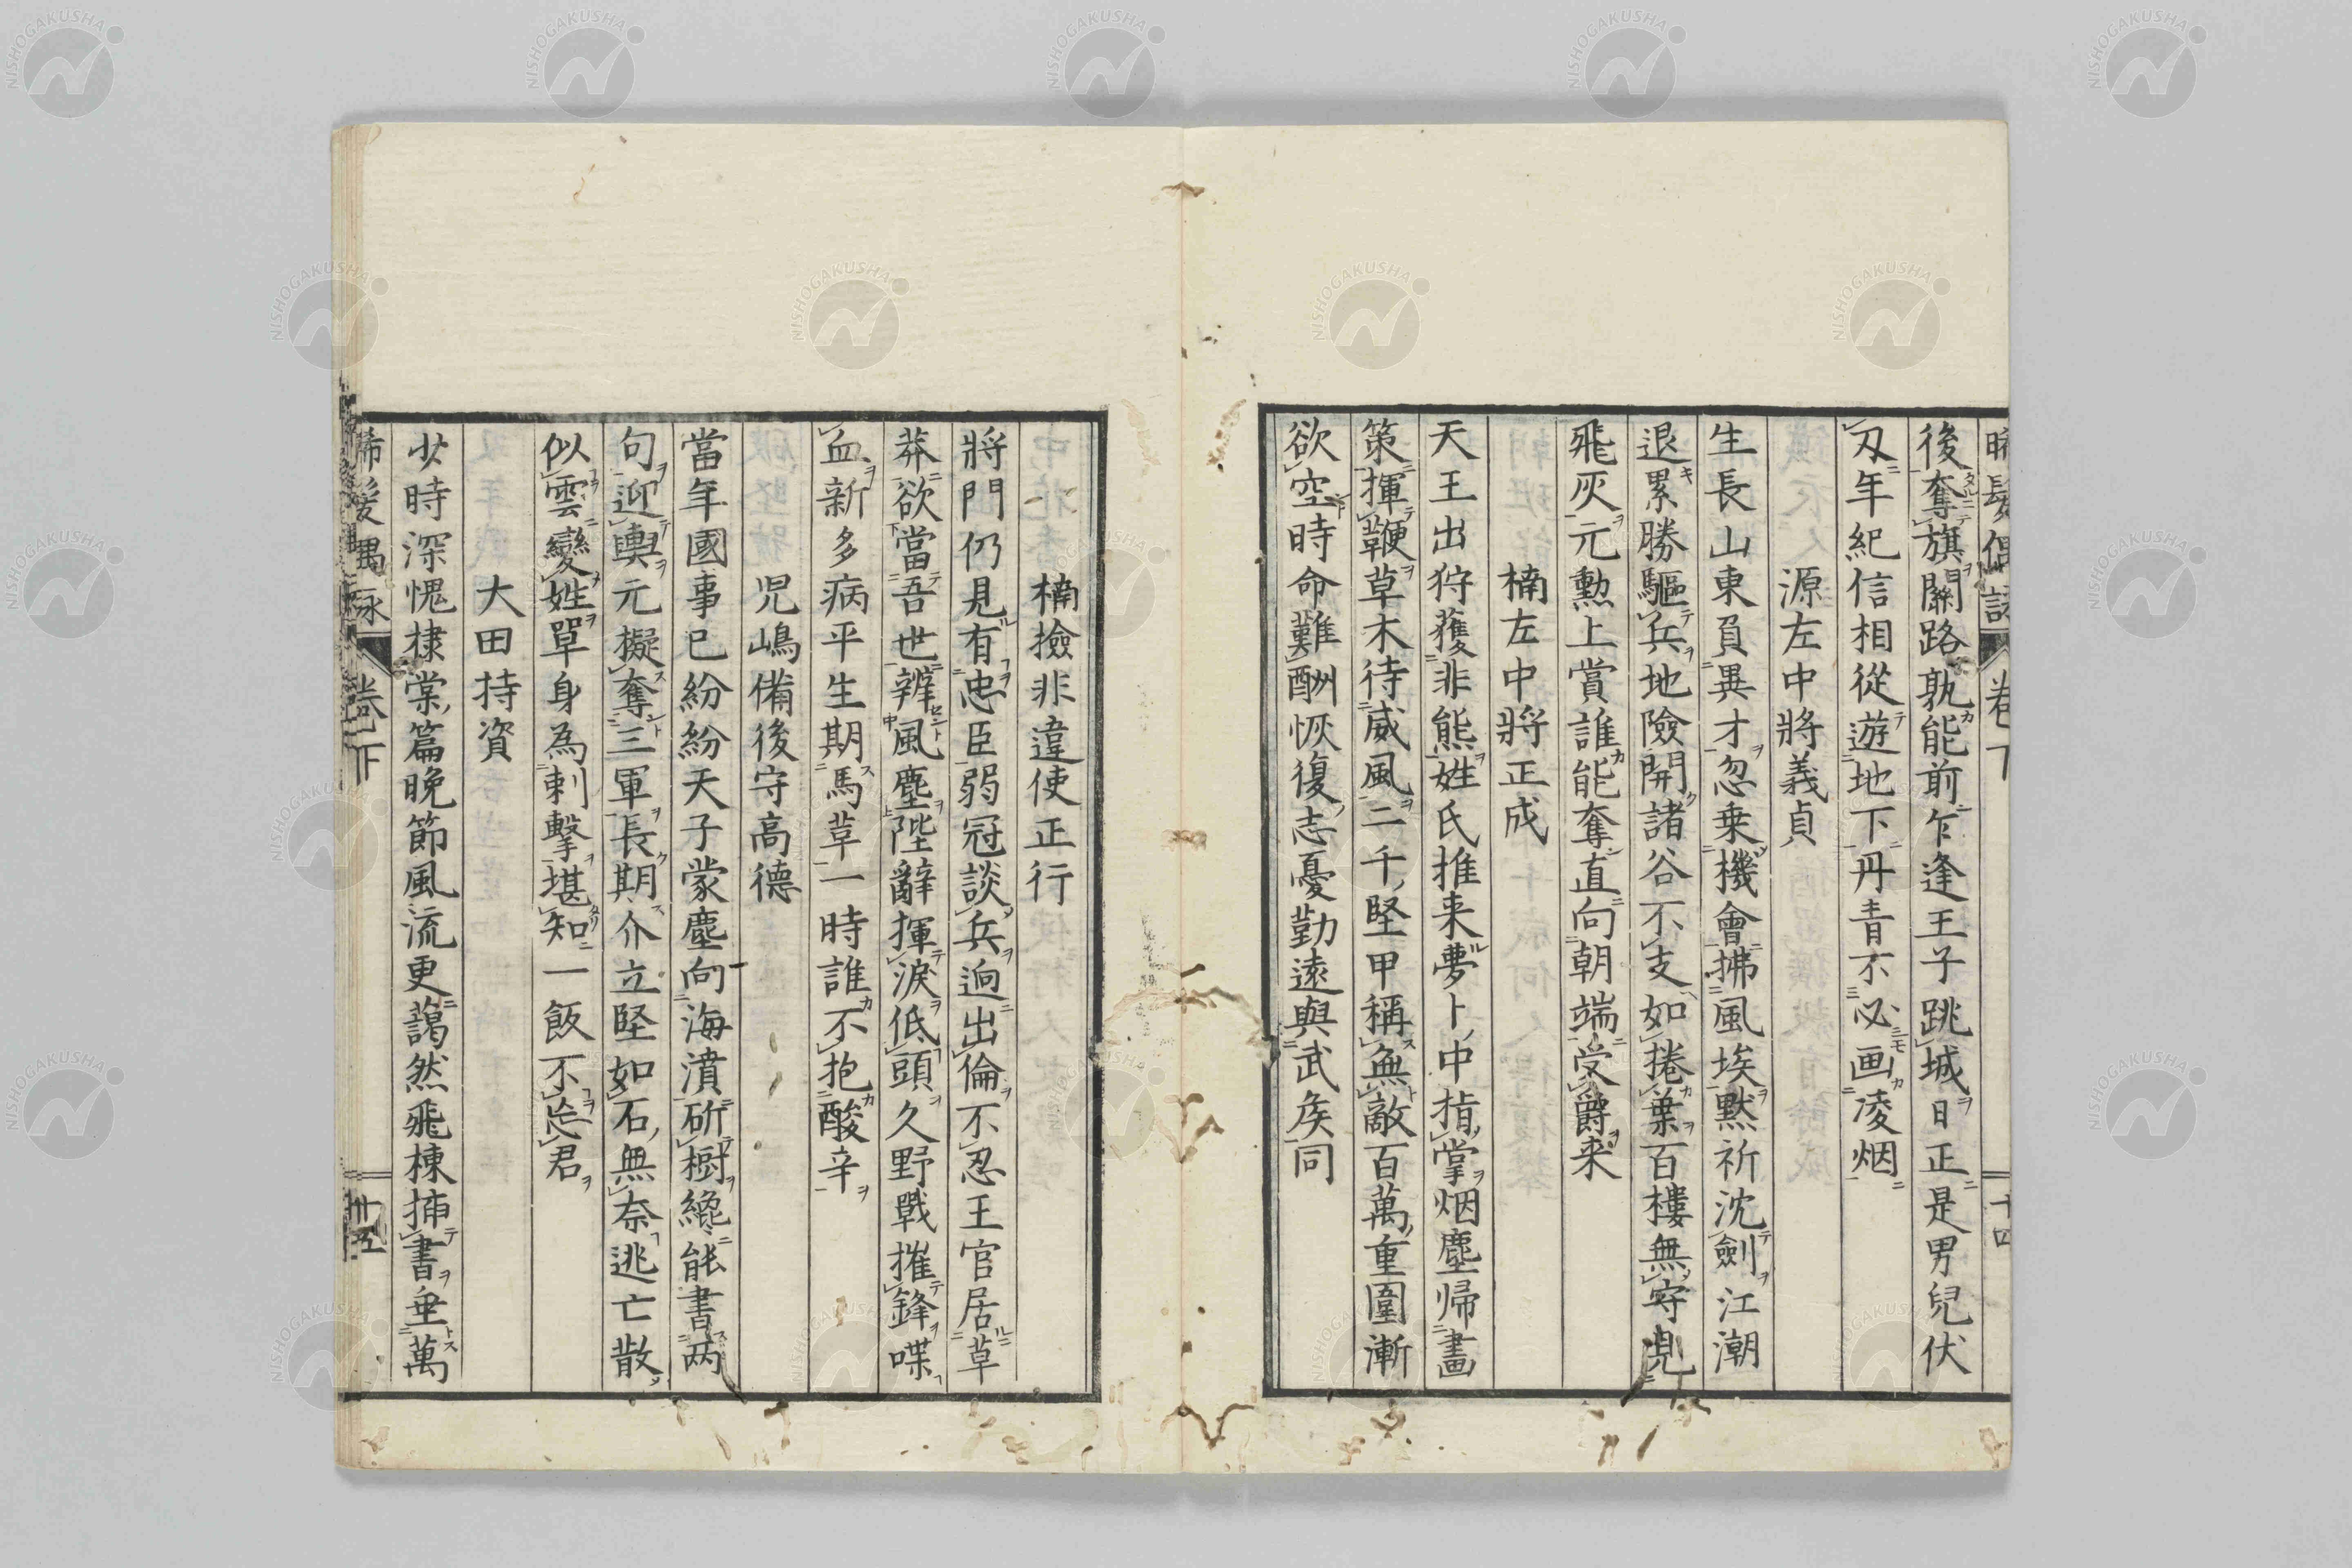 後奪旗關路孰能前乍逢王子跳城日正是男兒伏
刄年紀信相從遊地下丹青不必画凌烟
源左中將義貞
生長山東負異才忽乗機會拂風埃黙祈沈劍江潮
退累勝驅兵地險開諸谷不支如捲葉百樓無守兕
飛灰元勲上賞誰能奪直向朝端受爵来
楠左中將正成
天王出狩蒦非熊姓氏推来夢卜中指掌烟塵帰畫
策揮鞭草木待威風二千堅甲稱無敵百萬重圍漸
欲空時命難酬恢復志憂勤遠與武矦同
楠撿非違使正行
將門仍見有忠臣弱冠談兵迥出倫不忍王官居草
莽欲當吾世辨風塵陛辭揮淚低頭久野戰摧鋒喋
血新多病平生期馬革一時誰不抱酸辛
児嶋備後守高德
當年國事已紛紛天子蒙塵向海濆斫樹纔能書两
句迎輿元擬奪三軍長期介立堅如石無奈逃亡散
似雲變姓單身為刺擊堪知一飯不忘君
大田持資
少時深愧棣棠篇晚節風流更藹然飛棟揷書垂萬
晞髮偶詠 卷下 十五